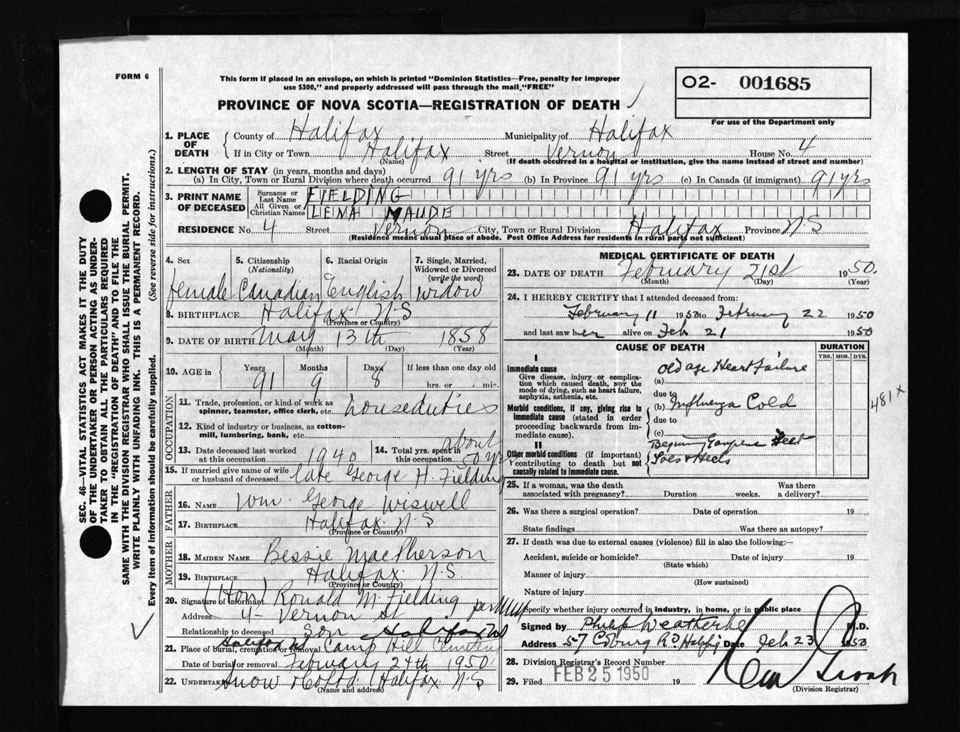 FORM 6
This form if placed in an envelope, on which is printed "Dominion Statistics—Free, penalty for improper
use $300," and properly addressed will pass through the mail "FREE"
02- 001685
For use of the Department only
PROVINCE OF NOVA SCOTIA—REGISTRATION OF DEATH
1. PLACE OF DEATH
County of Halifax Municipality of Halifax
If in City or Town Halifax Street Vernon House No. 4
(Name) (If death occurred in a hospital or institution, give the name instead of street and number)
2. LENGTH OF STAY (in years, months and days)
(a) In City, Town or Rural Division where death occurred 91 yrs (b) In Province 91 yrs (c) In Canada (if immigrant) 91 yrs
3. PRINT NAME OF DECEASED
Surname or Last Name FIELDING
All Given or Christian Names LENA MAUDE
RESIDENCE No. 4 Street Vernon City, Town or Rural Division Halifax Province N.S
(Residence means usual place of abode. Post Office Address for residents in rural parts not sufficient)
4. Sex
5. Citizenship (Nationality)
6. Racial Origin
7. Single, Married, Widowed or Divorced (write the word)
female Canadian English widow
8. BIRTHPLACE Halifax N.S
(Province or Country)
9. DATE OF BIRTH May 13th 1858
(Month) (Day) (Year)
10. AGE in Years Months Days If less than one day old
91 9 8 hrs. or min.
OCCUPATION
11. Trade, profession, or kind of work as spinner, teamster, office clerk, etc. houseduties
12. Kind of industry or business, as cotton-mill, lumbering, bank, etc.
13. Date deceased last worked at this occupation 1940
14. Total yrs. spent in this occupation about
15. If married give name of wife or husband of deceased late George H. Fielding
FATHER
16. NAME Wm. George Wiswell
17. BIRTHPLACE Halifax N.S
(Province or Country)
MOTHER
18. MAIDEN NAME Bessie MacPherson
19. BIRTHPLACE Halifax N.S
(Province or Country)
20. Signature of informant (Hon) Ronald M. Fielding per
Address 4- Vernon St
Relationship to deceased Son Halifax NS
21. Place of burial, cremation or removal Halifax NS Camp Hill Cemetery
Date of burial or removal February 24th 1950
22. Undertaker Snow & Co Ltd Halifax N.S
(Name and address)
MEDICAL CERTIFICATE OF DEATH
23. DATE OF DEATH February 21st 1950.
(Month) (Day) (Year)
24. I HEREBY CERTIFY that I attended deceased from:
February 11 1950 to February 22 1950
and last saw her alive on Feb 21 1950
CAUSE OF DEATH DURATION
YRS. MOS. DYS.
I
Immediate cause
Give disease, injury or complication which caused death, not the mode of dying, such as heart failure, asphyxia, asthenia, etc.
(a) Old age Heart Failure
due to
Morbid conditions, if any, giving rise to immediate cause (stated in order proceeding backwards from immediate cause).
(b) Influenza Cold
due to
(c)
II
Other morbid conditions (if important) contributing to death but not causally related to immediate cause.
Gangrene Feet
Toes & Heels
481 x
25. If a woman, was the death associated with pregnancy? Duration weeks. Was there a delivery?
26. Was there a surgical operation? Date of operation 19
State findings Was there an autopsy?
27. If death was due to external causes (violence) fill in also the following:—
Accident, suicide or homicide? Date of injury 19
(State which)
Manner of injury
(How sustained)
Nature of injury
Specify whether injury occurred in industry, in home, or in public place
Signed by Philip Weatherbe M.D.
Address 57 Coburg Rd Halifax Date Feb 23 1950
28. Division Registrar's Record Number
29. Filed FEB 25 1950 19
(Division Registrar)
SEC. 46—VITAL STATISTICS ACT MAKES IT THE DUTY
OF THE UNDERTAKER OR PERSON ACTING AS UNDERTAKER
TO OBTAIN ALL THE PARTICULARS REQUIRED
IN THE "REGISTRATION OF DEATH" AND TO FILE THE
SAME WITH THE DIVISION REGISTRAR WHO SHALL ISSUE THE BURIAL PERMIT.
WRITE PLAINLY WITH UNFADING INK. THIS IS A PERMANENT RECORD.
Every item of information should be carefully supplied. (See reverse side for instructions.)